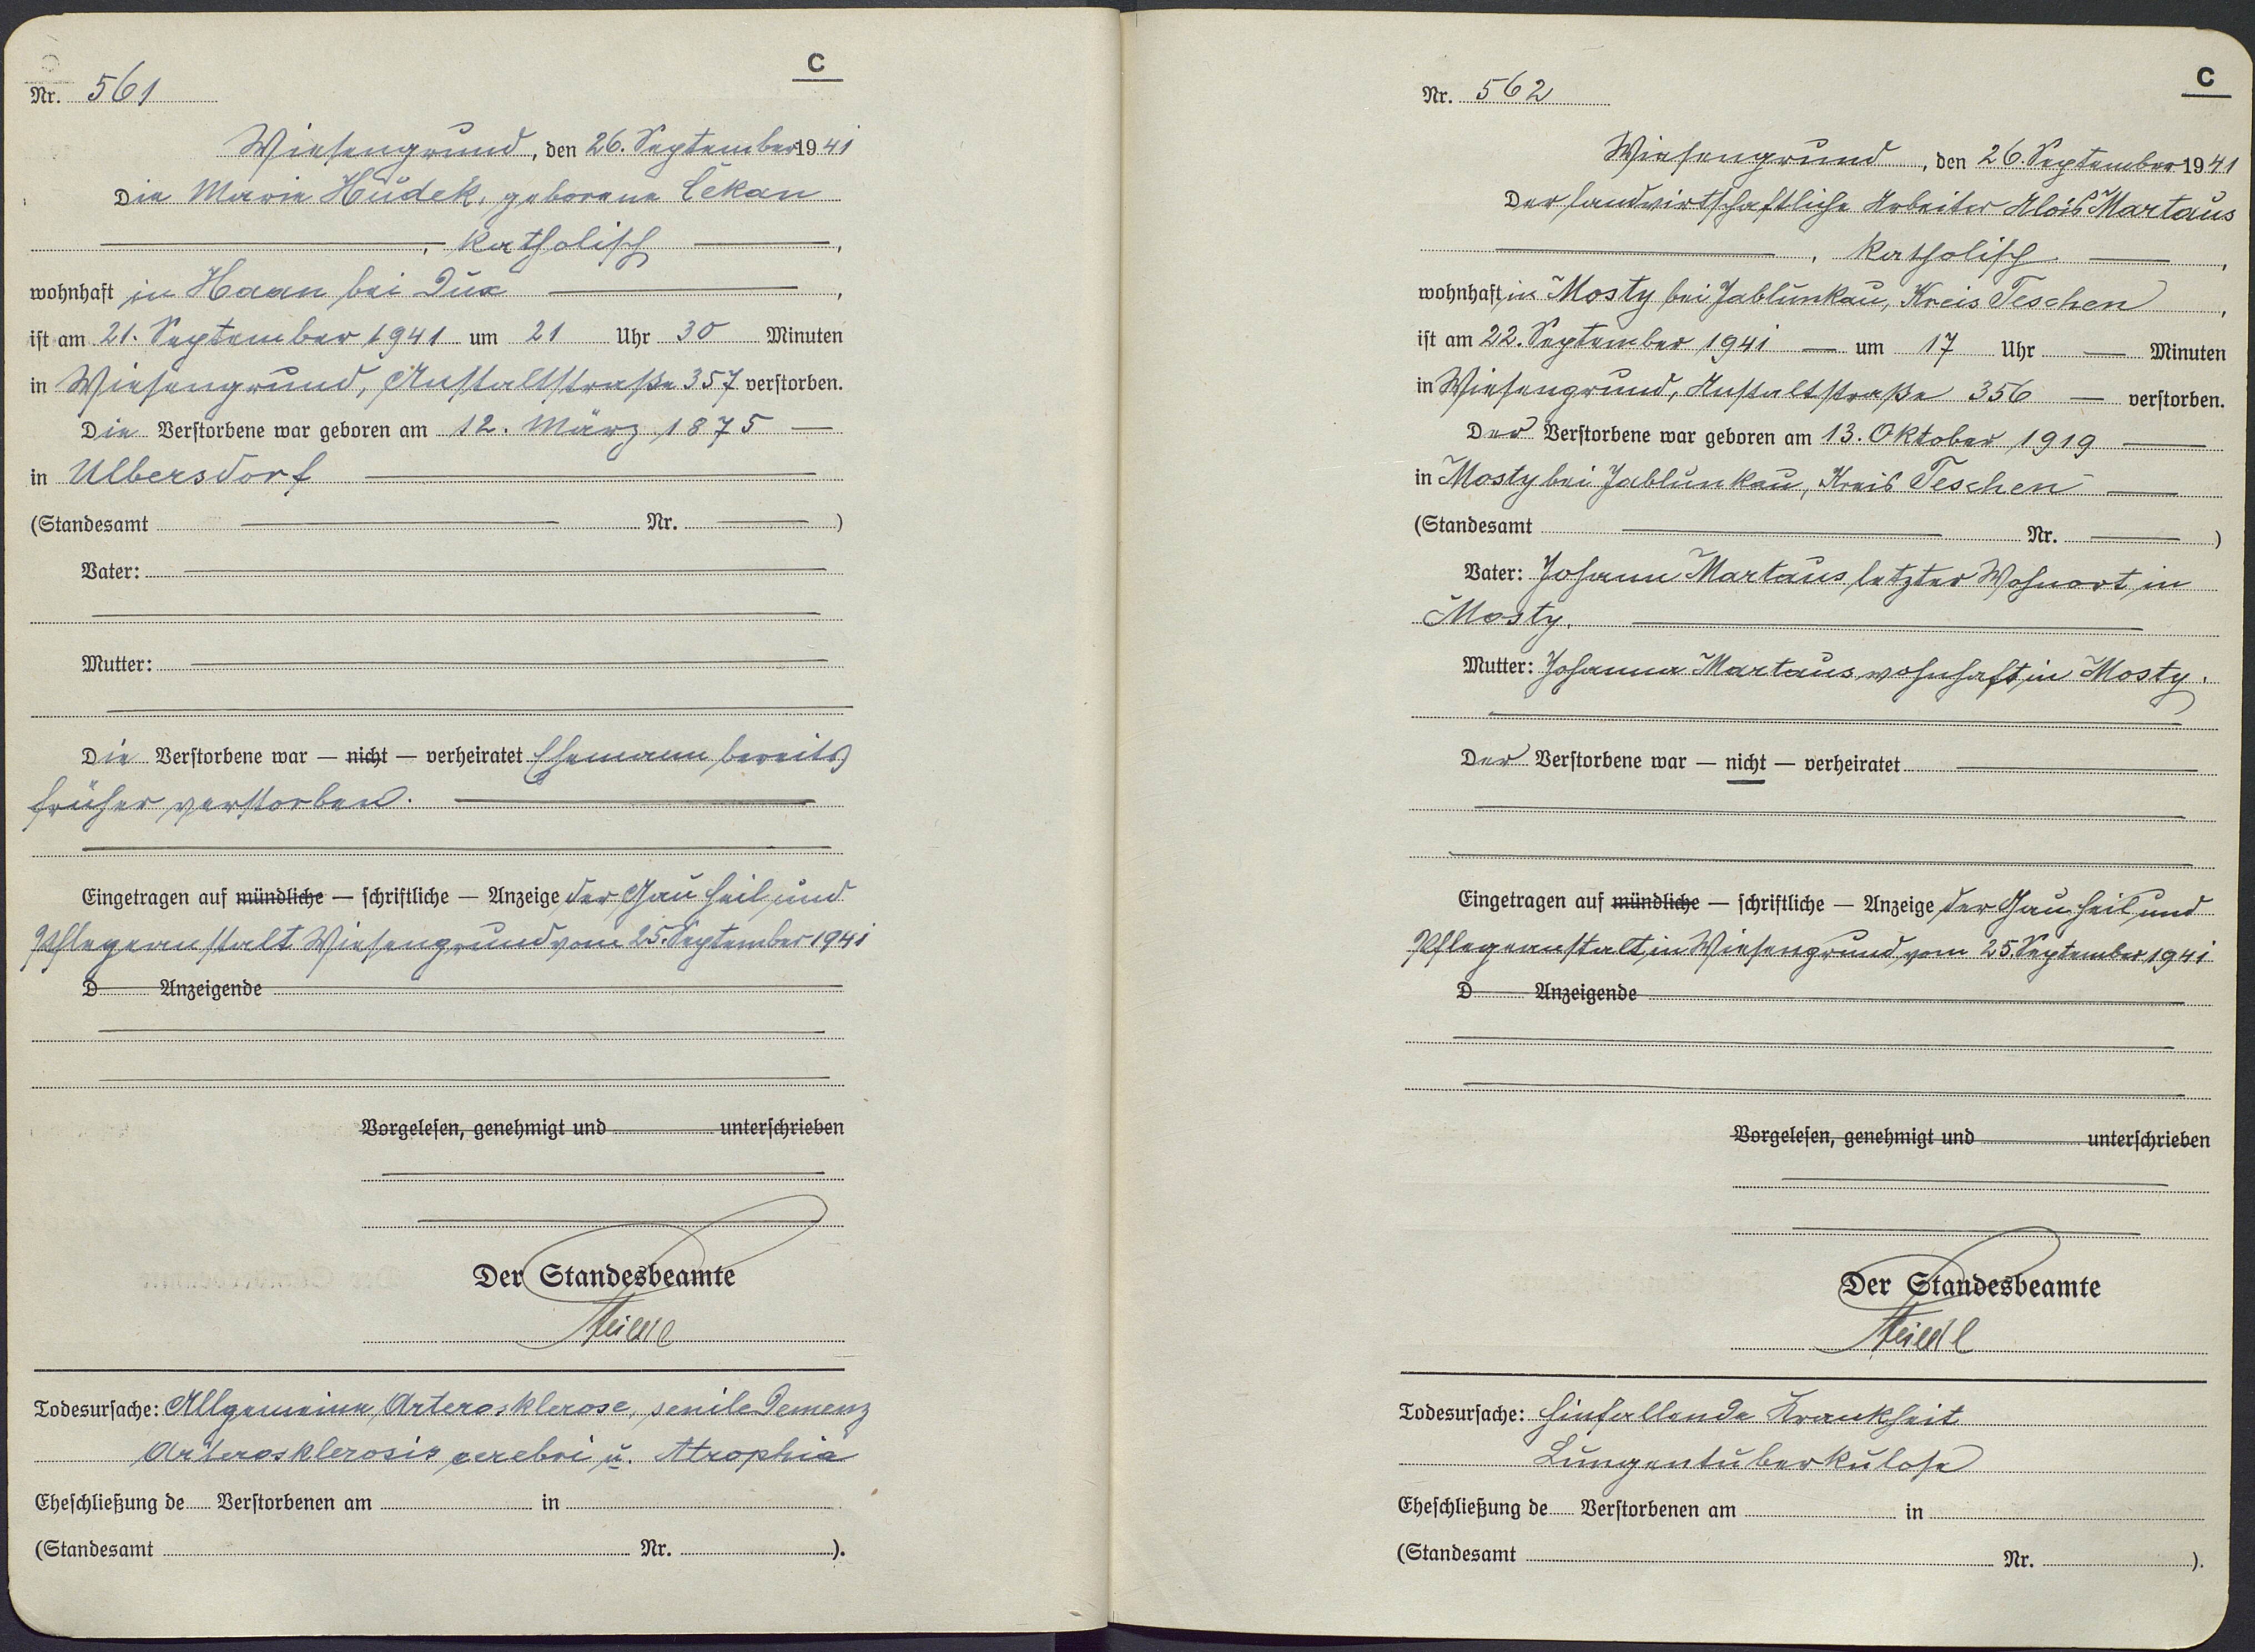 C
Nr. 561
Wiesengrund, den 26. September 1941
Die Marie Hudek, geborene Čekan
, katholisch,
wohnhaft in Haan bei Dux,
ist am 21. September 1941 um 21 Uhr 30 Minuten
in Wiesengrund, Anstaltstraße 357 verstorben.
Die Verstorbene war geboren am 12. März 1875
in Ulbersdorf
(Standesamt Nr. )
Vater:
Mutter:
Die Verstorbene war — nicht — verheiratet Ehemann bereits
früher verstorben.
Eingetragen auf mündliche — schriftliche — Anzeige der Gau heil und
Pflegeanstalt Wiesengrund vom 25. September 1941
D Anzeigende
Vorgelesen, genehmigt und unterschrieben
Der Standesbeamte
Todesursache: Allgemeine Arterosklerose, senile Demenz
Arterosklerosis cerebri u. Atrophia
Eheschließung de Verstorbenen am in
(Standesamt Nr. ).
C
Nr. 562
Wiesengrund, den 26. September 1941
Der landwirtschaftliche Arbeiter Alois Martaus
, katholisch,
wohnhaft in Mosty bei Jablunkau, Kreis Teschen,
ist am 22. September 1941 — um 17 Uhr — Minuten
in Wiesengrund, Anstaltstraße 356 — verstorben.
Der Verstorbene war geboren am 13. Oktober 1919
in Mosty bei Jablunkau, Kreis Teschen
(Standesamt Nr. )
Vater: Johann Martaus letzter Wohnort in
Mosty.
Mutter: Johanna Martaus wohnhaft in Mosty.
Der Verstorbene war — nicht — verheiratet
Eingetragen auf mündliche — schriftliche — Anzeige der Gau heil und
Pflegeanstalt in Wiesengrund vom 25. September 1941
D Anzeigende
Vorgelesen, genehmigt und unterschrieben
Der Standesbeamte
Todesursache: Hinfallende Krankheit
Lungentuberkulose
Eheschließung de Verstorbenen am in
(Standesamt Nr. ).